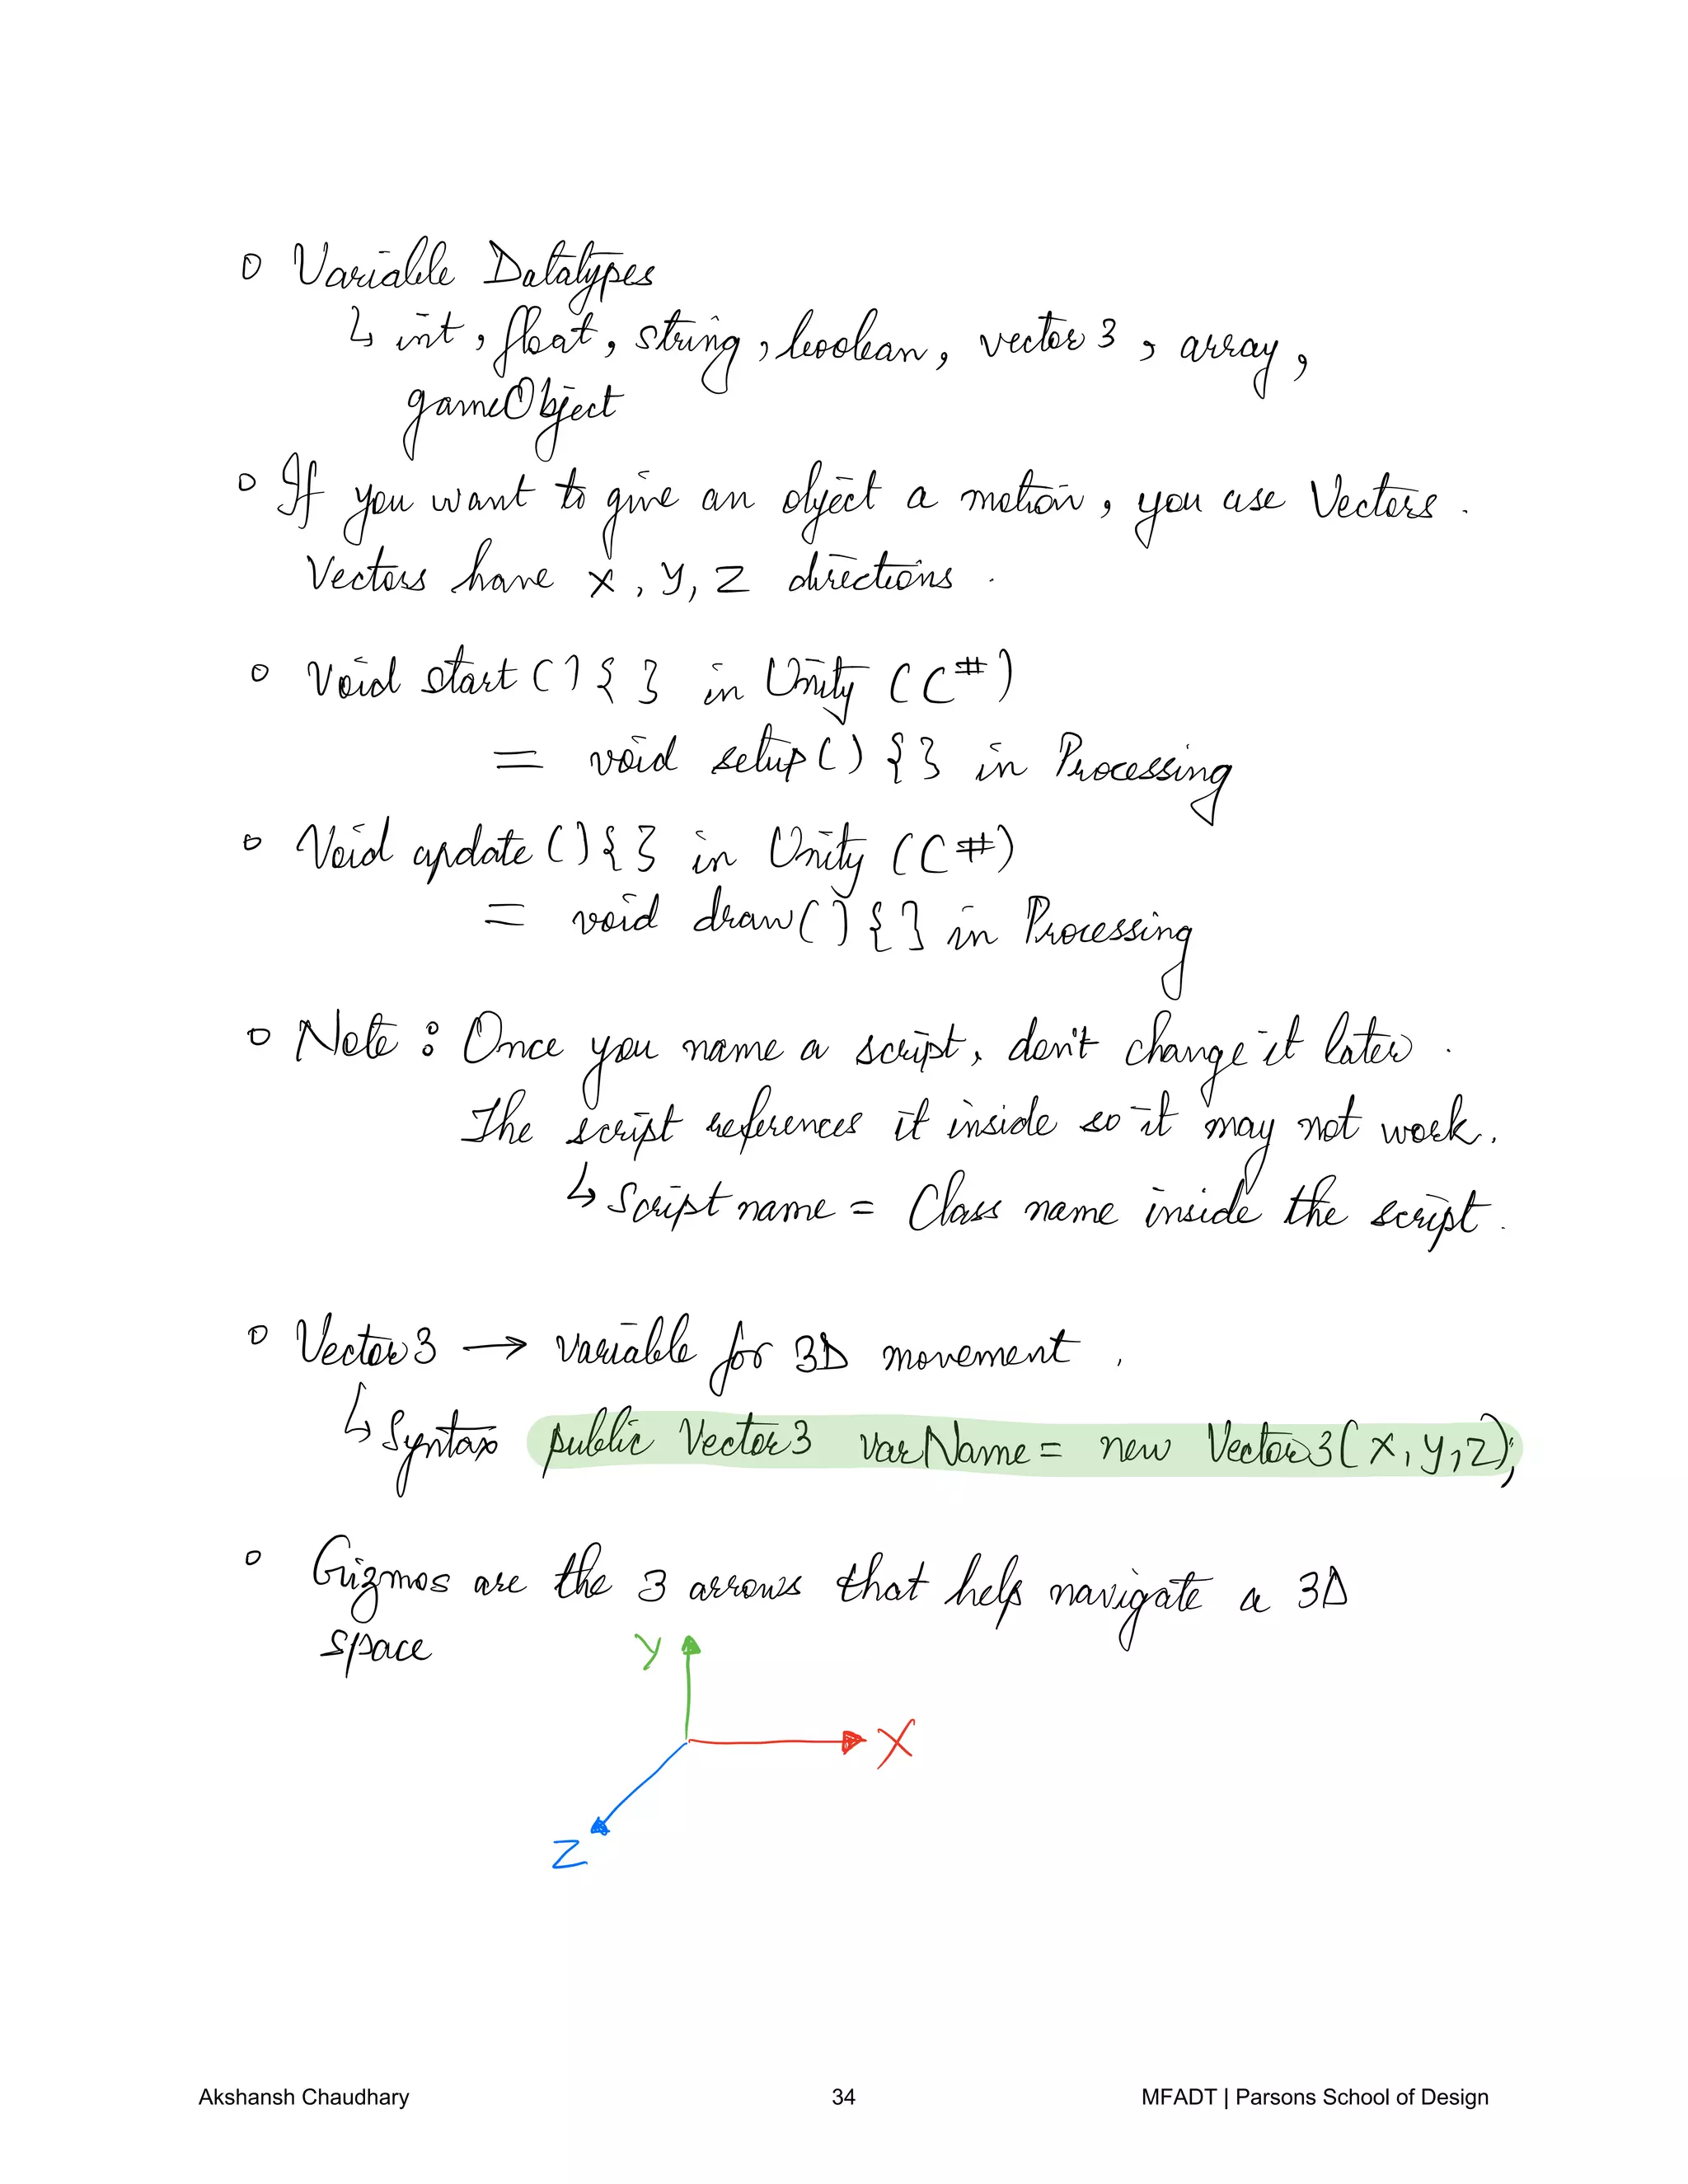 o Variable Datatypes
↳ int, float, string, boolean, vector 3, array,
gameObject
o If you want to give an object a motion, you use Vectors.
Vectors have x, y, z directions.
o Void start () { } in Unity (C#)
= void setup () { } in Processing
o Void update () { } in Unity (C#)
= void draw () { } in Processing
o Note : Once you name a script, don't change it later.
The script references it inside so it may not work.
↳ Script name = Class name inside the script.
o Vector3 → variable for 3D movement.
↳ Syntax public Vector3 varName = new Vector3(x, y, z);
o Gizmos are the 3 arrows that help navigate a 3D
space
Y
X
Z
Akshansh Chaudhary 34 MFADT | Parsons School of Design